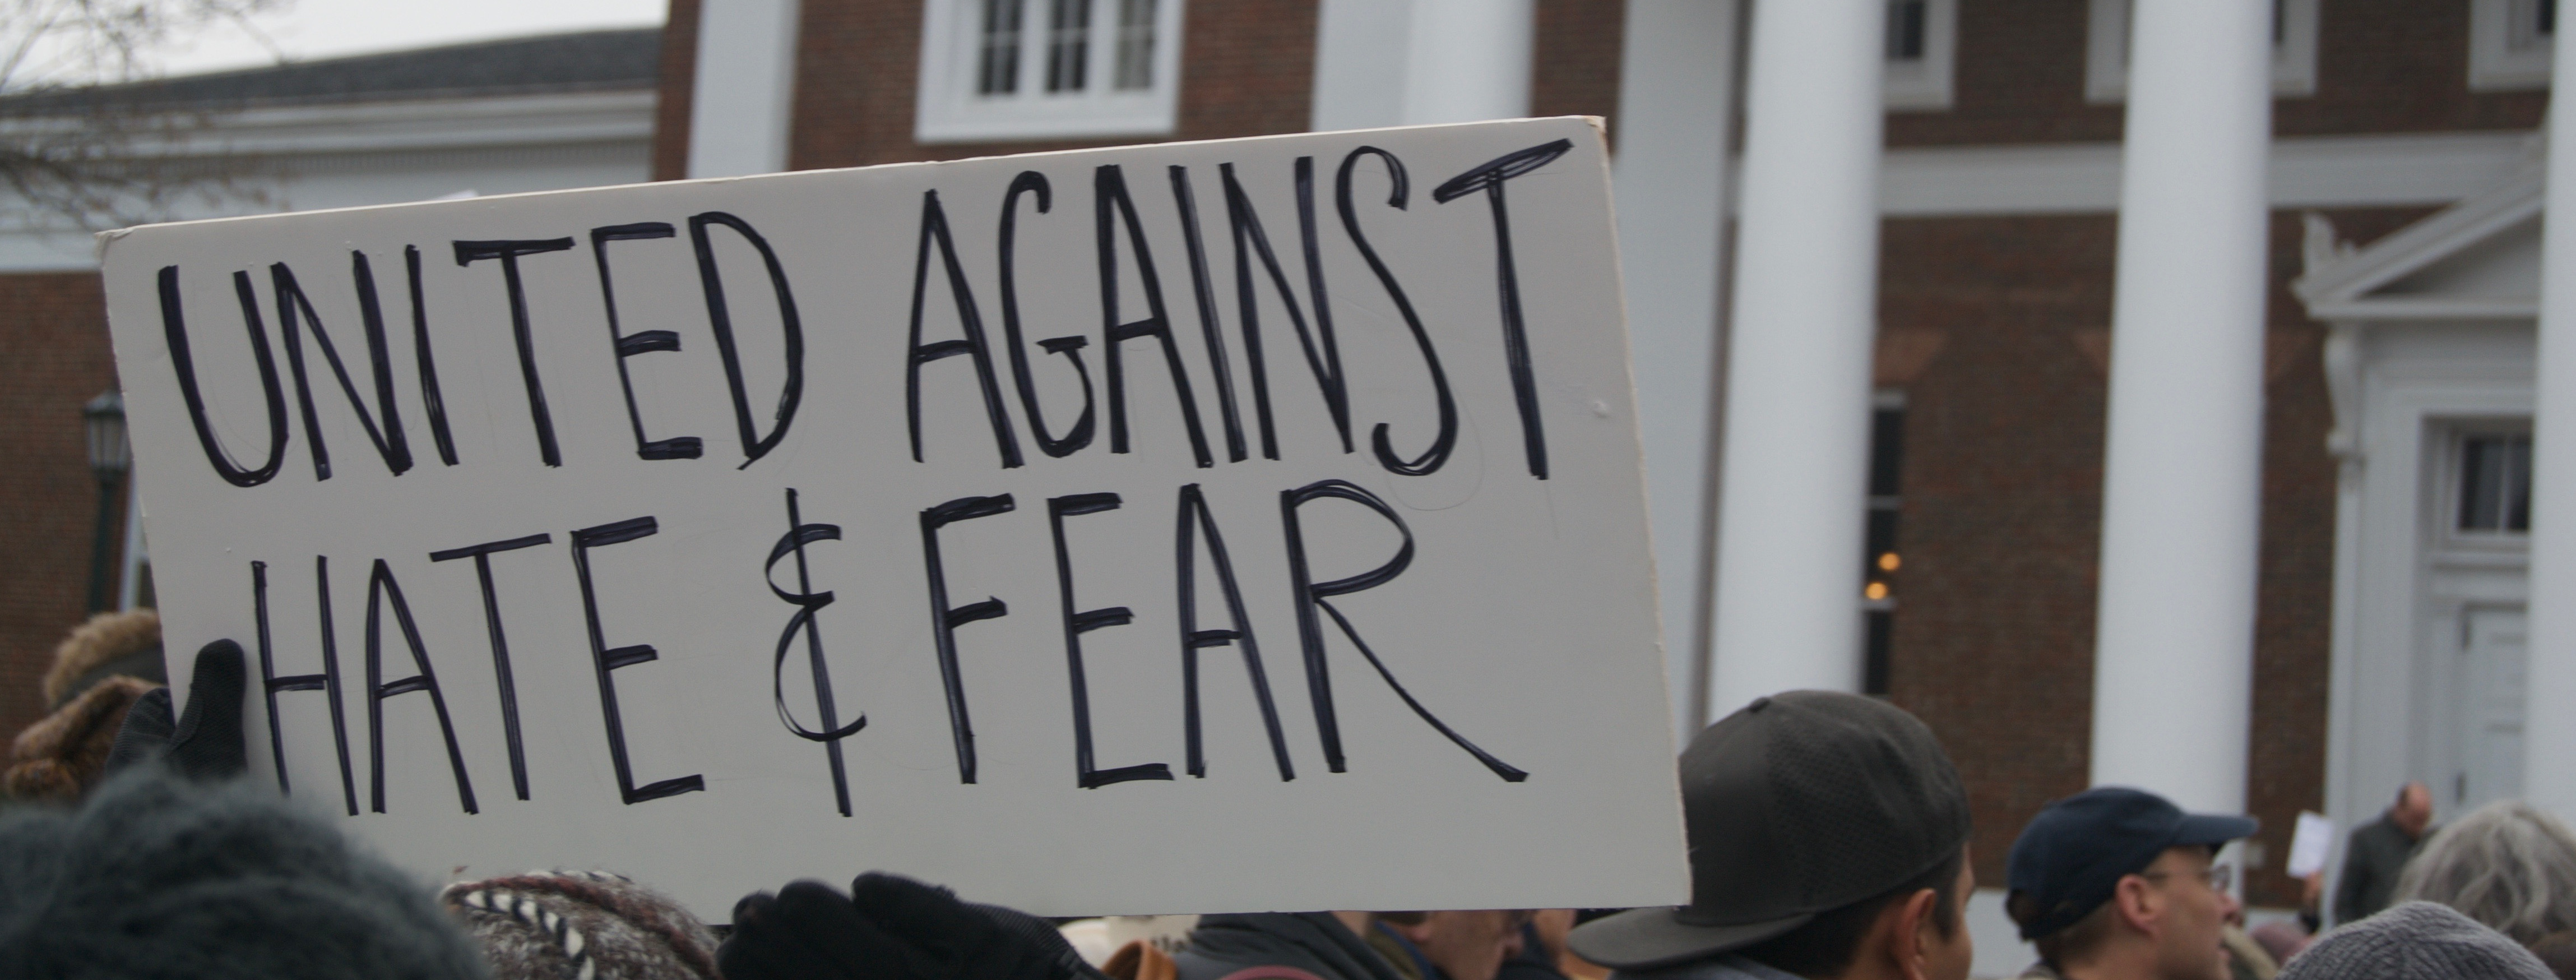 UNITED AGAINST
HATE & FEAR